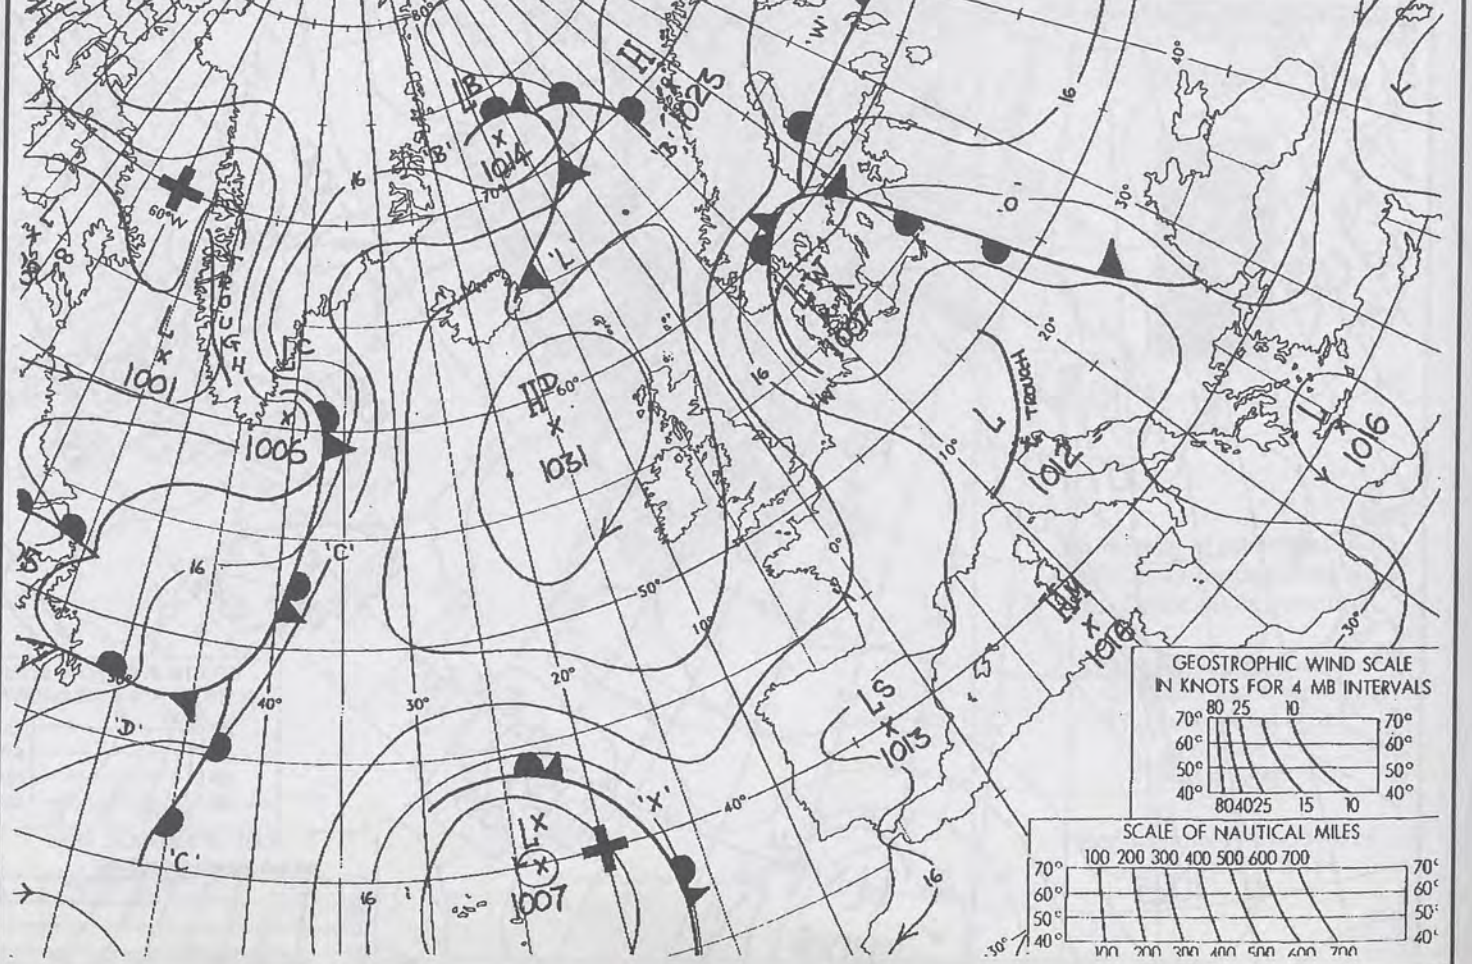 80°
H
1025
'W'
40°
16
LB
B'
1014
70°
'B'
16
60°W
30°
'O'
'L'
TROUGH
L
1001
C
1006
HD
60°
1031
16
20°
L
TROUGH
1012
10°
L
1016
'C'
16
50°
0°
10°
HM
1016
30°
50°
'D'
40°
30°
20°
LS
1013
'X'
40°
L
1007
16
'C'
16
30°
GEOSTROPHIC WIND SCALE
IN KNOTS FOR 4 MB INTERVALS
80 25 10
70° 70°
60° 60°
50° 50°
40° 40°
80 40 25 15 10
SCALE OF NAUTICAL MILES
100 200 300 400 500 600 700
70° 70°
60° 60°
50° 50°
40° 40°
100 200 300 400 500 600 700